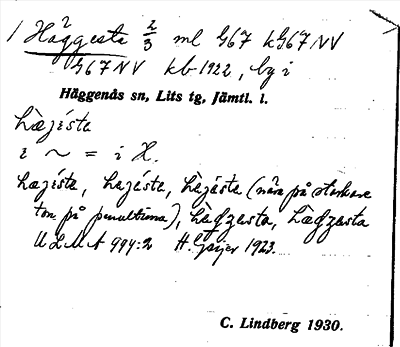 1 Häggesta 2/3 ml G67 kG67NV
G67NV kb 1922, by i
Häggenås sn, Lits tg, Jämtl. l.
hæ̀jísta
i ~ = i H.
hæjísta, hajésta, hæ̀jésta (nära på starkare
ton på penultima),
ULMA 994:2 H. Geijer 1923.
C. Lindberg 1930.